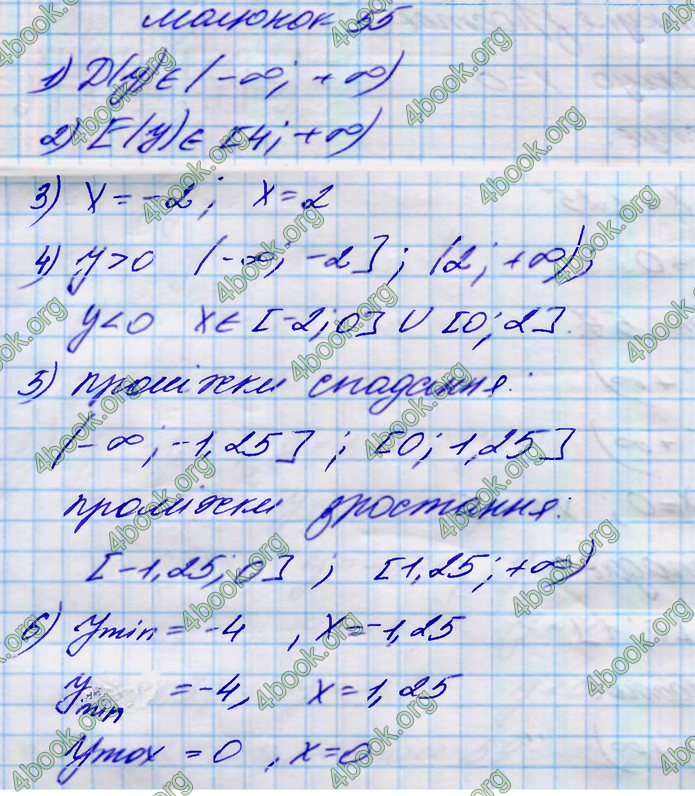 малюнок 55
1) D(y) ∈ (-∞; +∞)
2) E(y) ∈ [4; +∞)
3) x = -2; x = 2
4) y > 0 (-∞; -2]; (2; +∞);
y < 0 x ∈ [-2; 0] ∪ [0; 2].
5) проміжки спадання:
(-∞; -1,25]; [0; 1,25]
проміжки зростання:
[-1,25; 0], [1,25; +∞)
6) ymin = -4, x = -1,25
ymin = -4, x = 1,25
ymax = 0, x = 0
4book.org